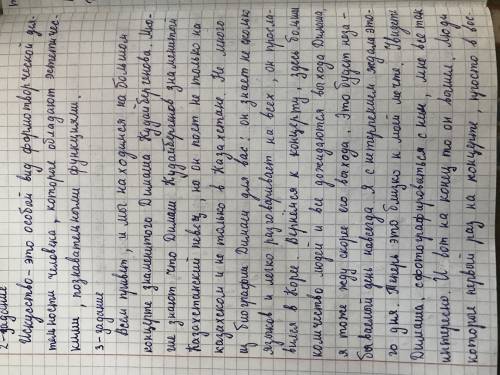 2-задание
Искусство-это особый вид формотворческой дея-
тельности человека, которые обладают эстетичес-
кими познавательными функциями.
3-задание
Всем привет, и мы находимся на большом
концерте знаменитого Димаша Кудайбергенова. Мно-
гие знают что Димаш Кудайбергенов знаменитой
Казахстанский певец, но он поет не только на
казахском и не только в Казахстане. Не много
из биографии Димаша для вас: он знает несколько
языков и легко разговаривает на всех, он просла-
вился в Корее. Вернёмся к концерту, здесь большая
количество людей и все дожидаются выхода Димаша,
я тоже жду скорее его выхода. Это будет неза-
бываемой день навсегда. Я с нетерпением ждала это-
го дня. Теперь это близко к моей мечте. Увидеть
Димаша, сфотографироваться с ним, мне все так
интересно. И вот на конец то он вышел. Люди
которые первой раз на концерте, просто в вос-